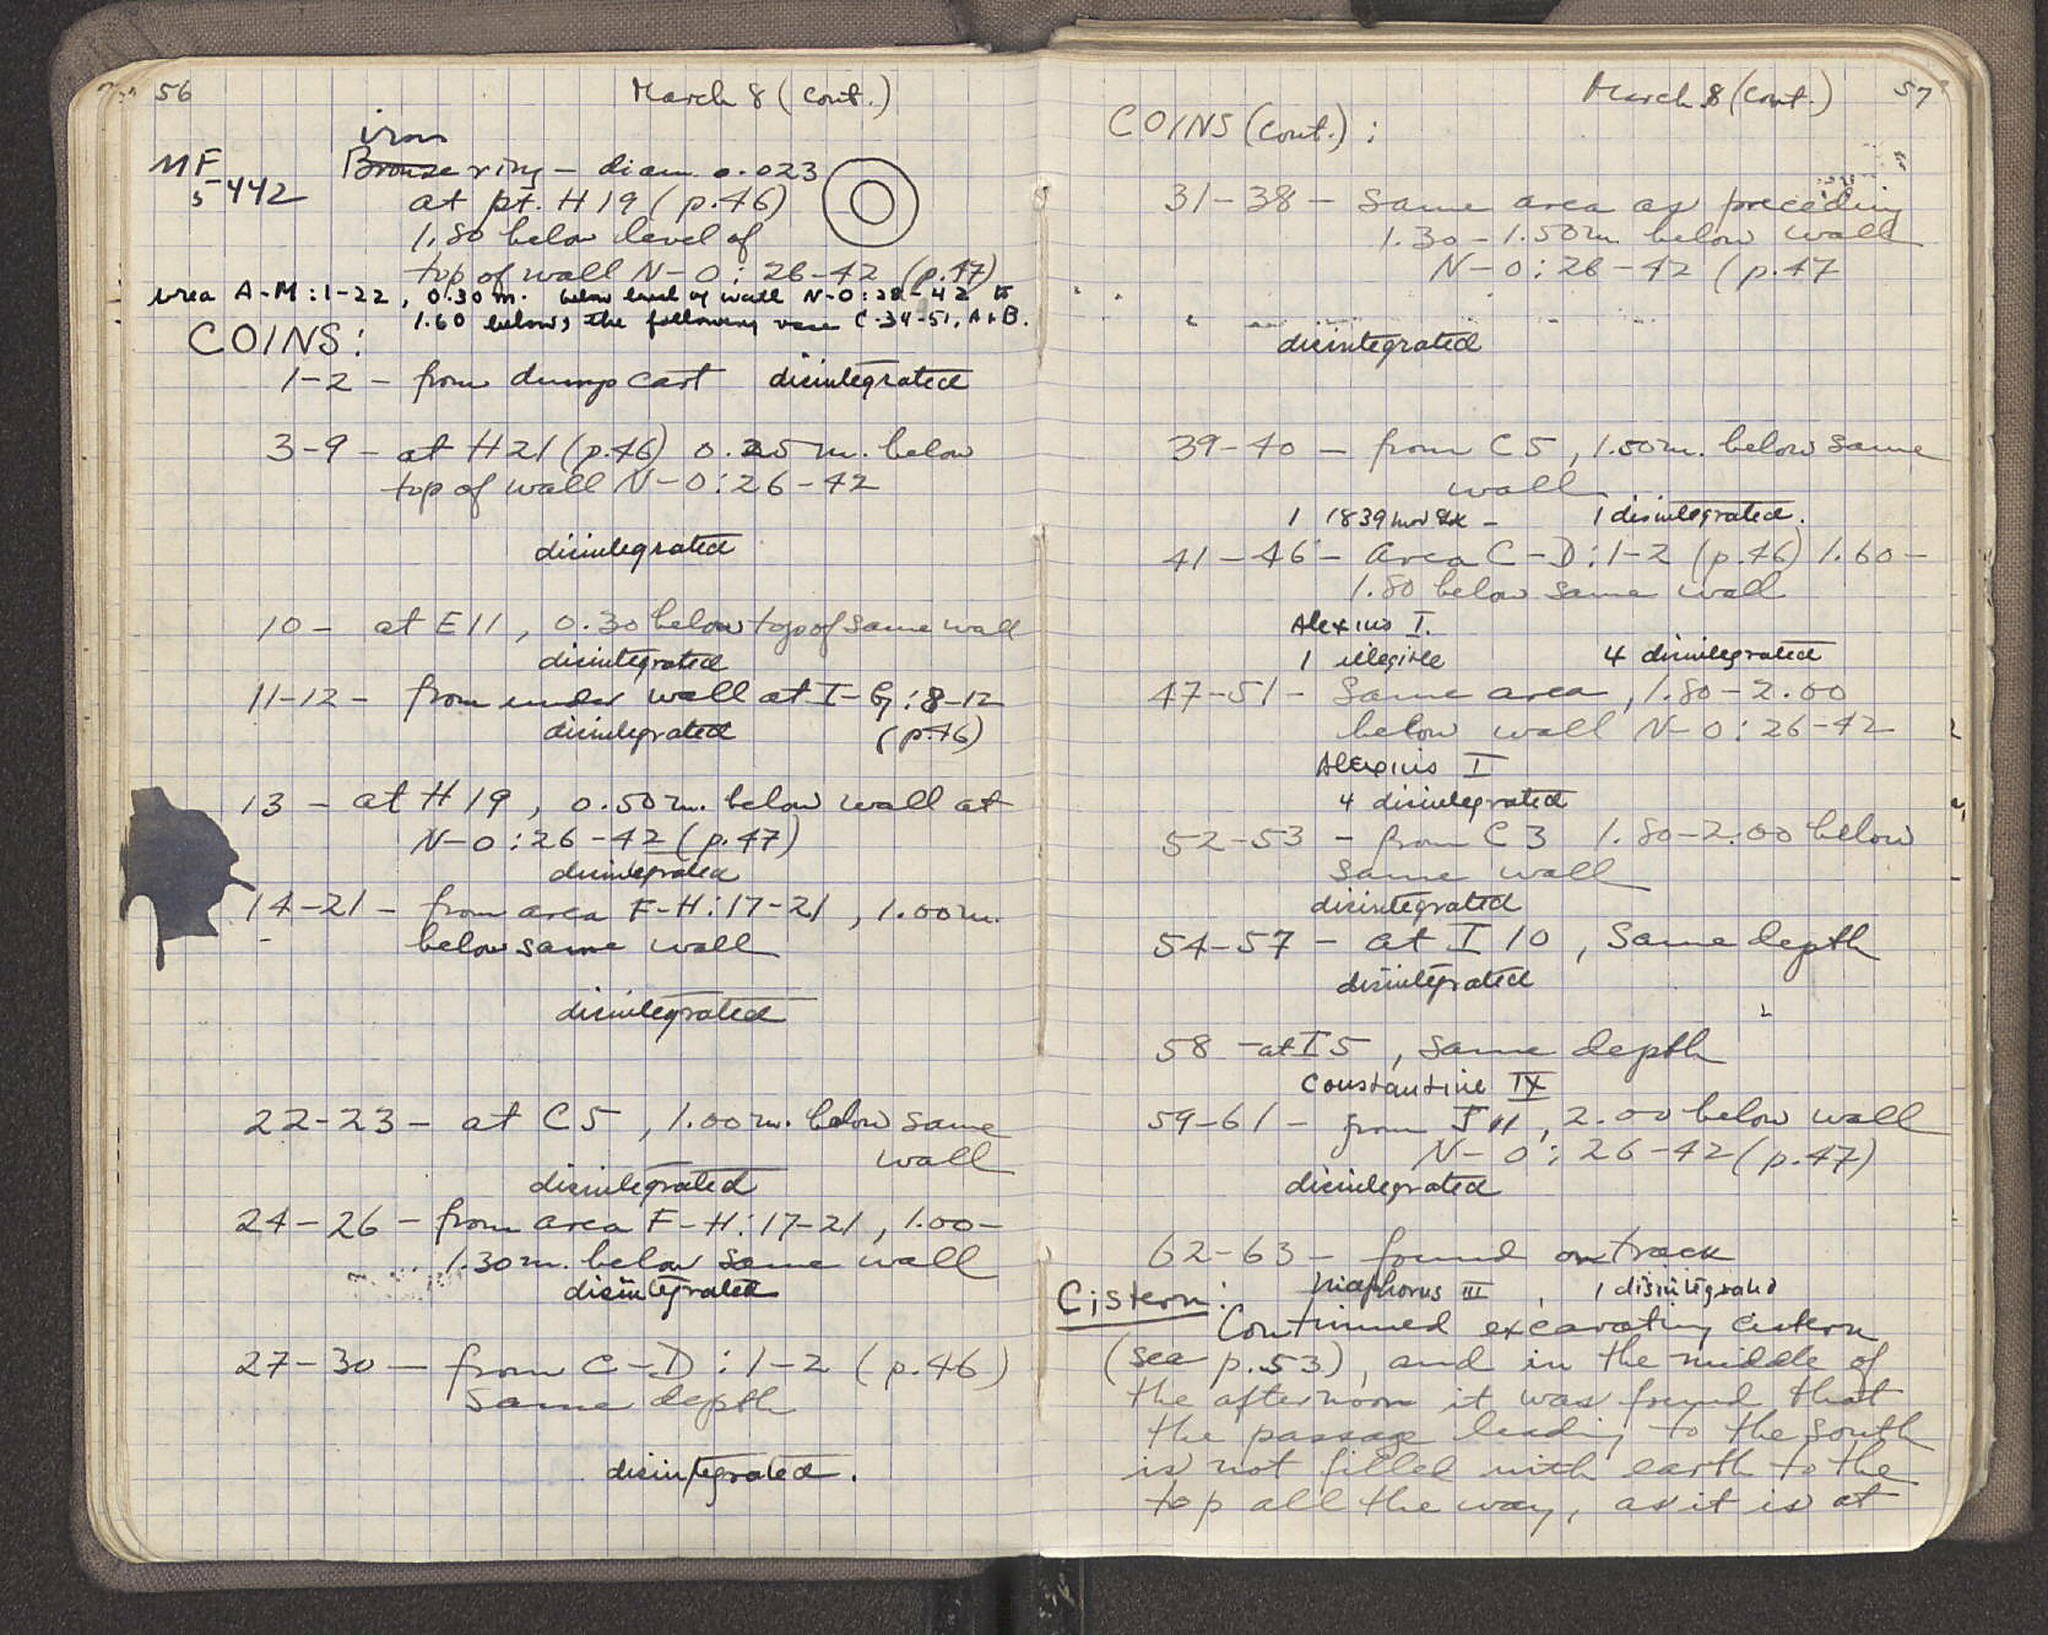 56
March 8 (cont.)
iron
MF
5442
Bronze ring – diam. 0.023
at pt. H 19 (p.46)
1.80 below level of
top of wall N–O : 26–42 (p.47)
area A-M:1-22, 0.30 m. below level of wall N-O:28-42 to
1.60 below, the following vase C-34-51, A+B.
COINS:
1–2 – from dump cart disintegrated
3–9 – at H21 (p.46) 0.25 m. below
top of wall N–O : 26–42
disintegrated
10 – at E11, 0.30 below top of same wall
disintegrated
11–12 – from under wall at I–G : 8–12
disintegrated (p.46)
13 – at H 19, 0.50 m. below wall at
N–O : 26–42 (p.47)
disintegrated
14–21 – from area F–H : 17–21, 1.00 m.
below same wall
disintegrated
22–23 – at C5, 1.00 m. below same
wall
disintegrated
24–26 – from area F–H : 17–21, 1.00–
1.30 m. below same wall
disintegrated
27–30 – from C–D : 1–2 (p.46)
same depth
disintegrated.
March 8 (cont.)
57
COINS (cont.) :
31–38 – same area as preceding
1.30–1.50 m. below wall
N–O : 26–42 (p.47
disintegrated
39–40 – from C5, 1.50 m. below same
wall
1 1839 – 1 disintegrated.
41–46 – area C–D : 1–2 (p.46) 1.60–
1.80 below same wall
Alexius I.
1 illegible 4 disintegrated
47–51 – same area, 1.80–2.00
below wall N–O : 26–42
Alexius I
4 disintegrated
52–53 – from C3 1.80–2.00 below
same wall
disintegrated
54–57 – at I 10, same depth
disintegrated
58 – at I 5, same depth
Constantine IX
59–61 – from I 11, 2.00 below wall
N–O : 26–42 (p.47)
disintegrated
62–63 – found on track
Nicephorus III, 1 disintegrated
Cistern:
Continued excavating cistern
(see p.53), and in the middle of
the afternoon it was found that
the passage leading to the south
is not filled with earth to the
top all the way, as it is at